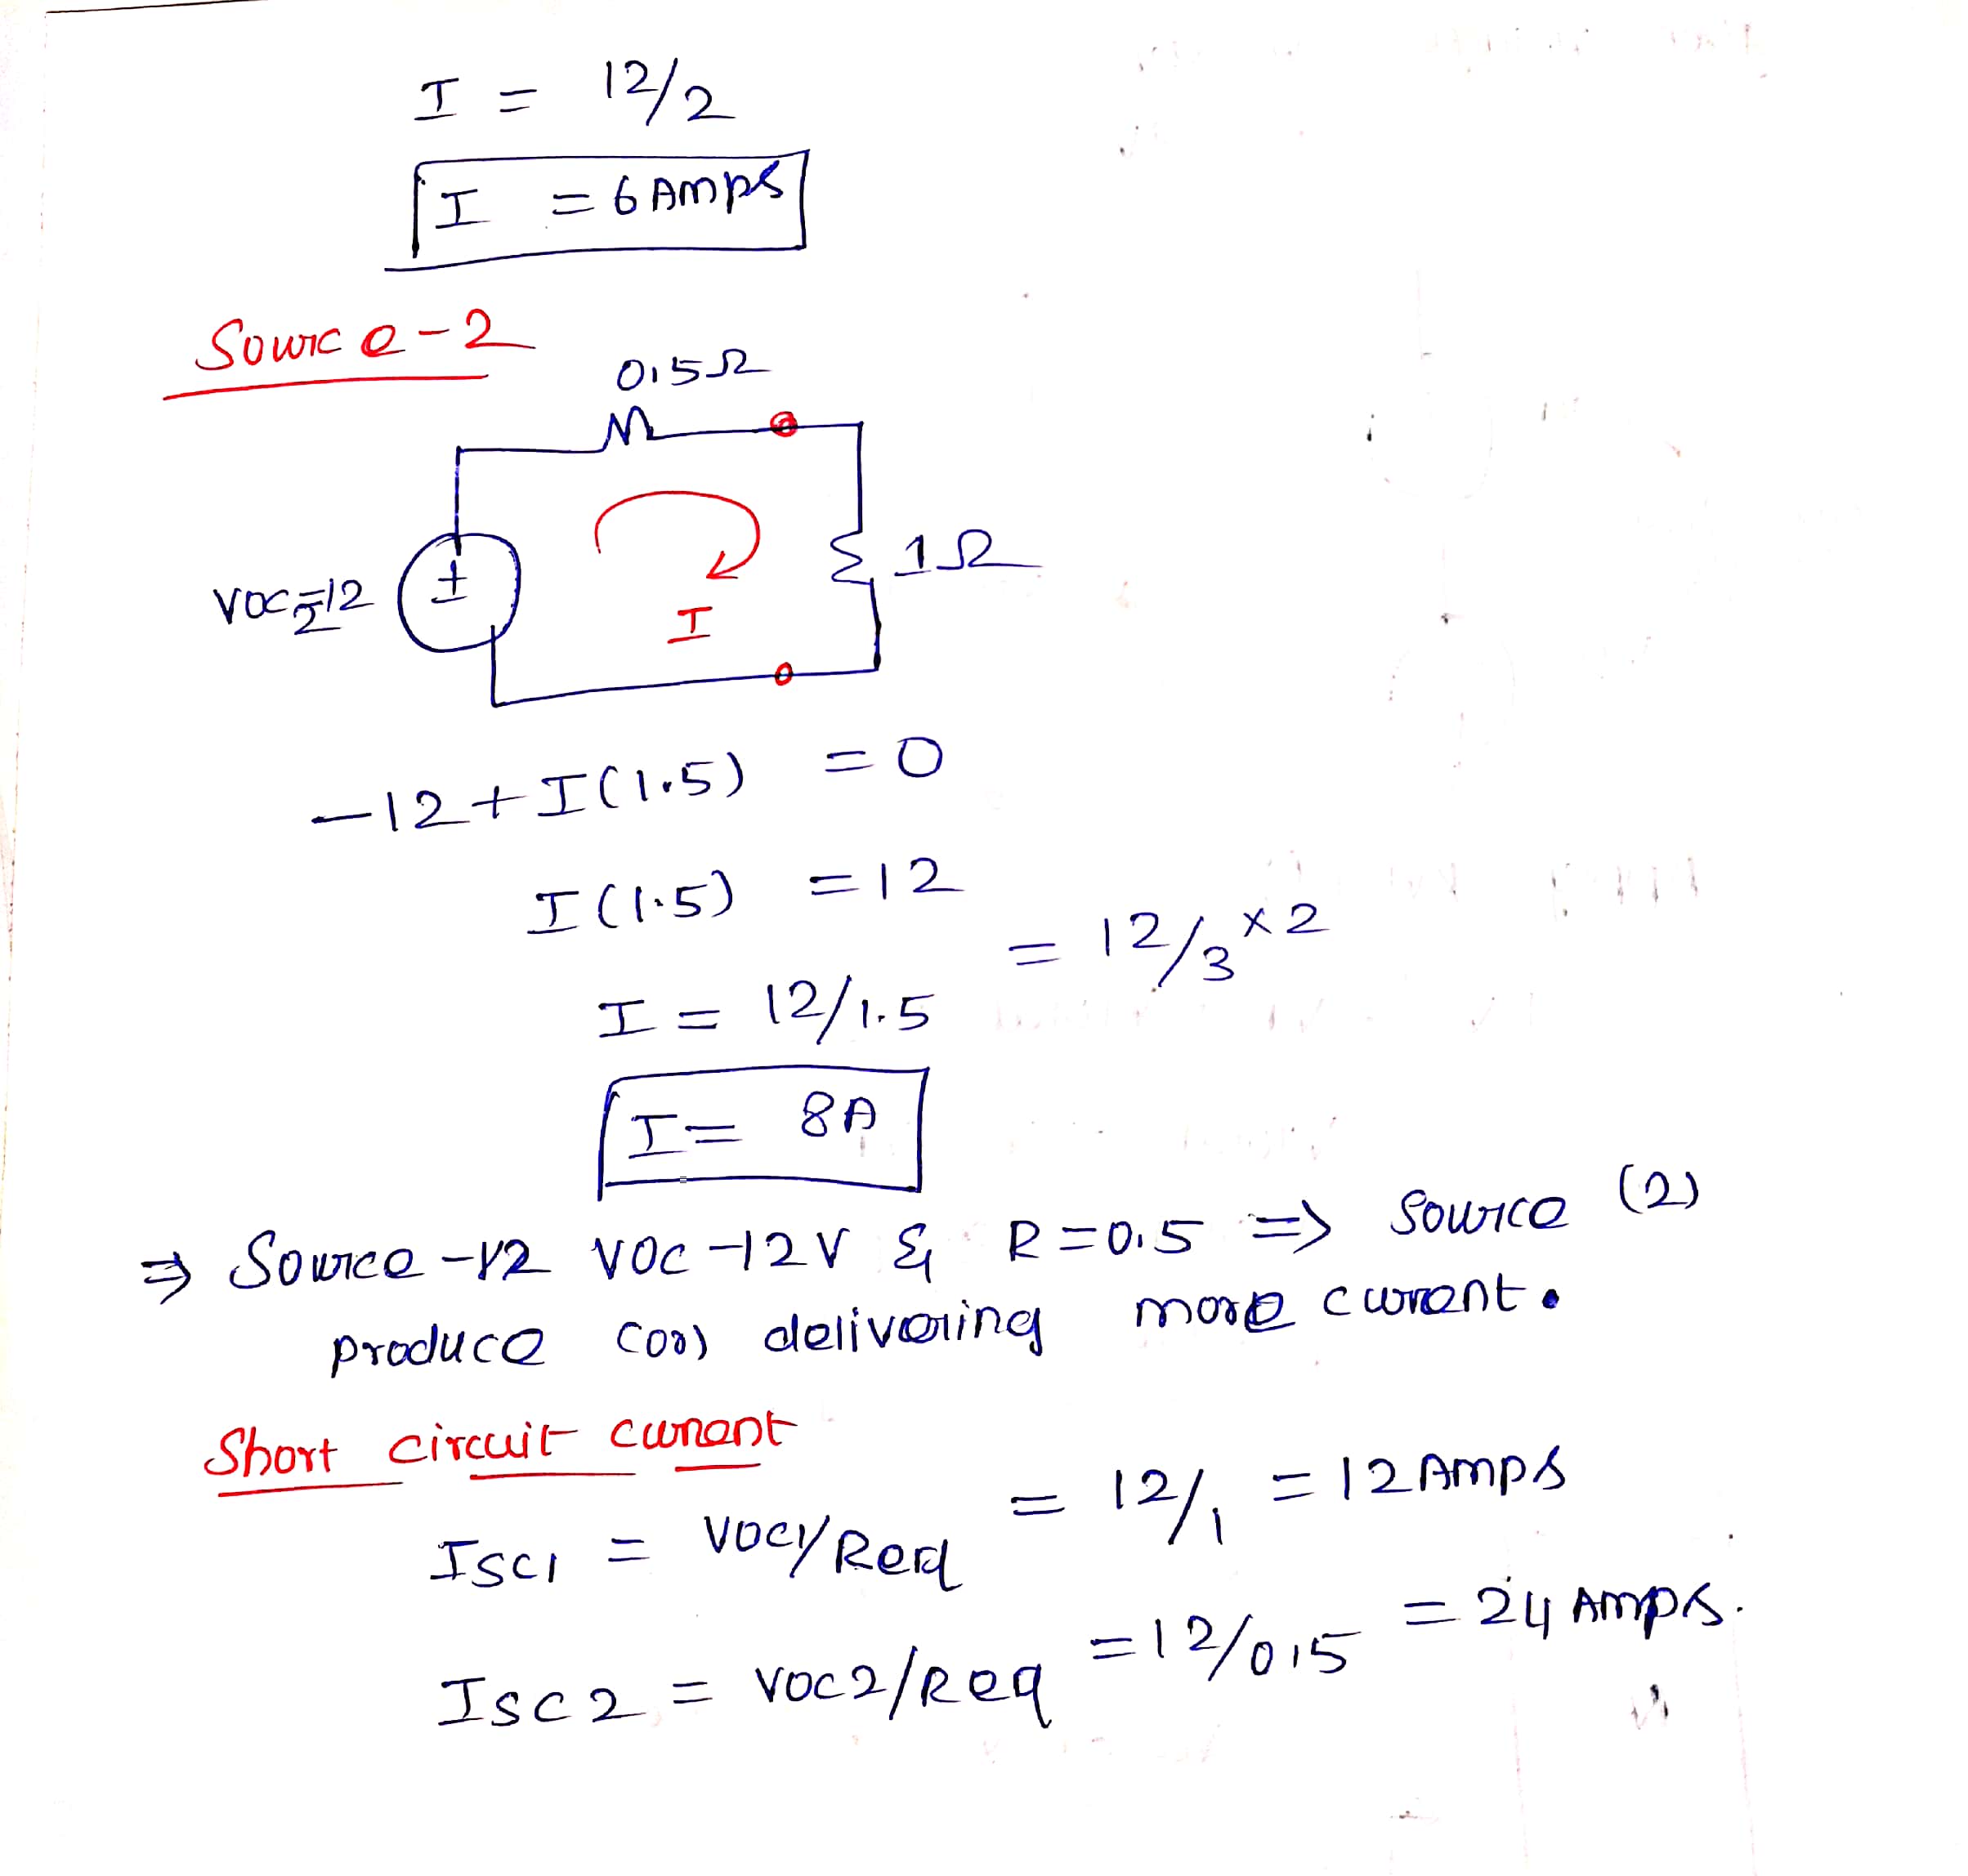 I = 12/2
I = 6 Amps
Source-2
0.5Ω
1Ω
Voc2=12
+
-
I
-12 + I(1.5) = 0
I(1.5) = 12
I = 12/1.5 = 12/3 × 2
I = 8A
⇒ Source-2 VOC-12V & R=0.5 ⇒ Source (2)
produce (or) delivering more current.
Short circuit current
ISC1 = VOC1/Req = 12/1 = 12 Amps
ISC2 = VOC2/Req = 12/0.5 = 24 Amps.